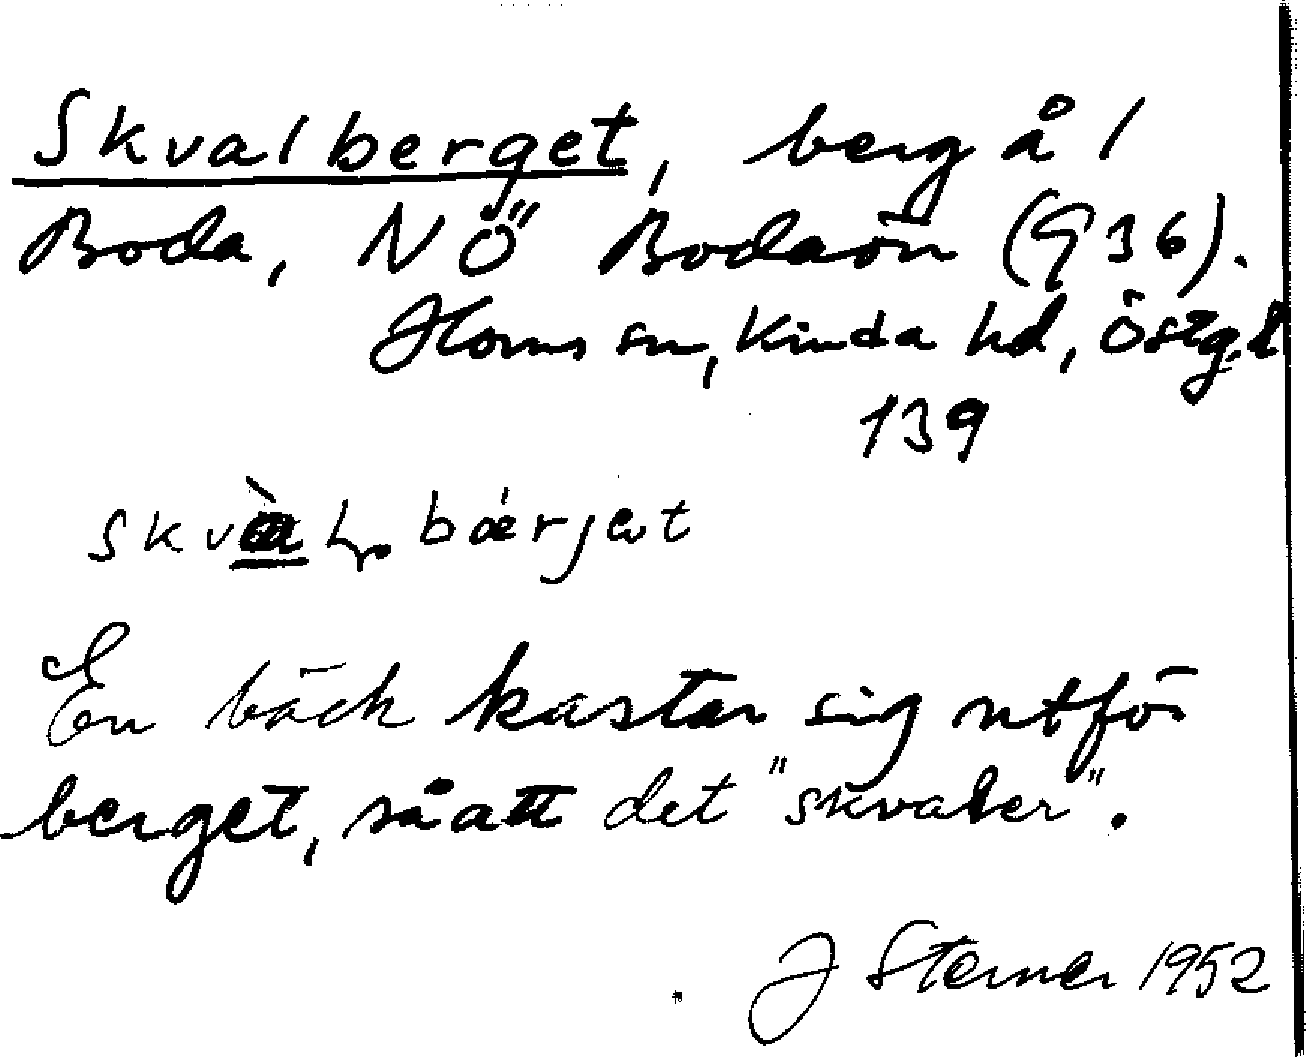 Skvalberget, berg å 1
Boda, NÖ Bodaön (936).
Horns sn, Kinda hd, Östg.l
139
bærjet
En bäck kastar sig utför
berget, så att det "skvaler".
J Sterner 1952